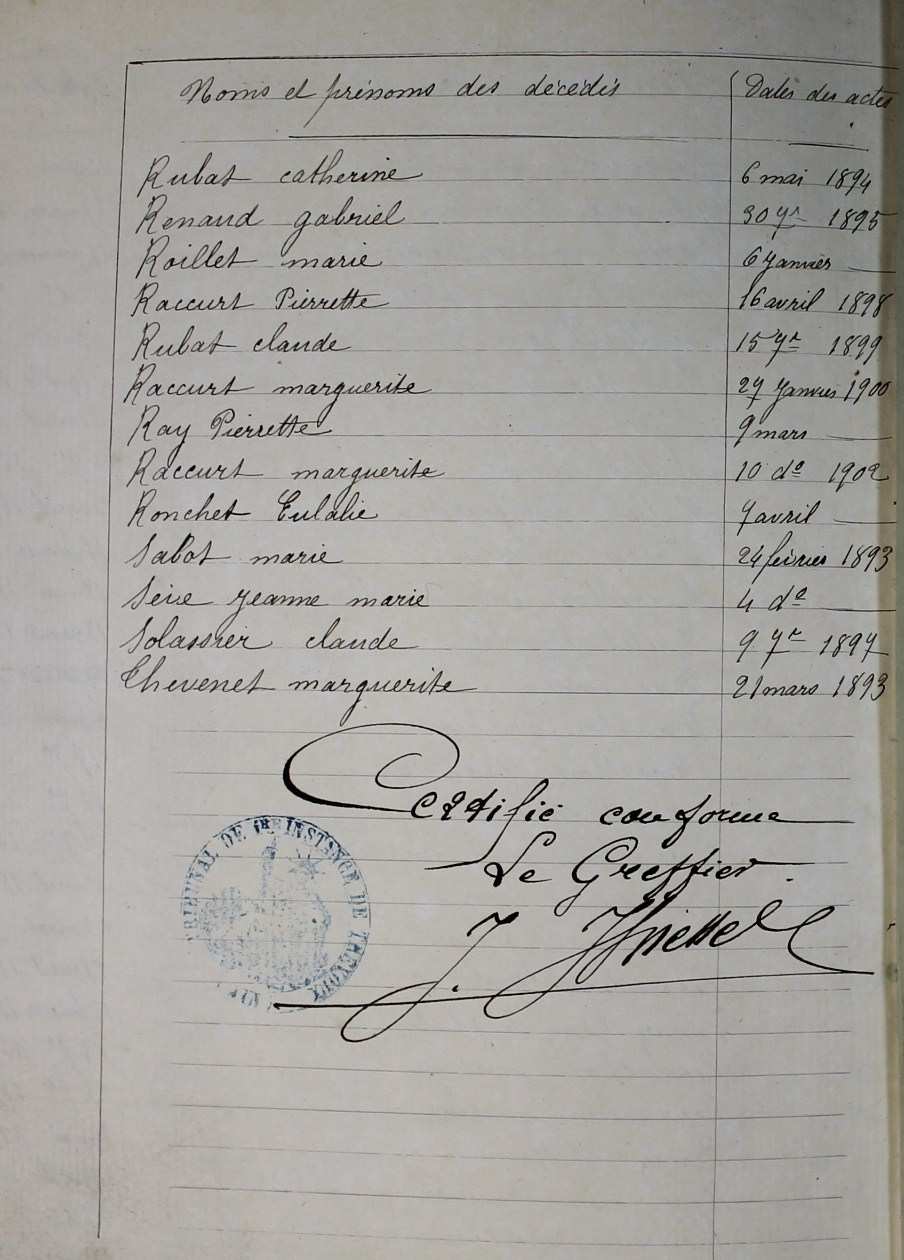 Noms et prénoms des décédés Dates des actes
Rubat catherine 6 mai 1894
Renaud gabriel 30 7re 1895
Roillet marie 6 Janvier —
Raccurt Pierrette 16 avril 1898
Rubat claude 15 7re 1899
Raccurt marguerite 27 Janvier 1900
Ray Pierrette 9 mars —
Raccurt marguerite 10 do 1902
Ronchet Eulalie 7 avril —
Sabot marie 24 février 1893
Seve Jeanne marie 4 do —
Solassier claude 9 7re 1897
Thevenet marguerite 21 mars 1893
Certifié conforme
Le Greffier.
TRIBUNAL DE 1RE INSTANCE DE TREVOUX
J.